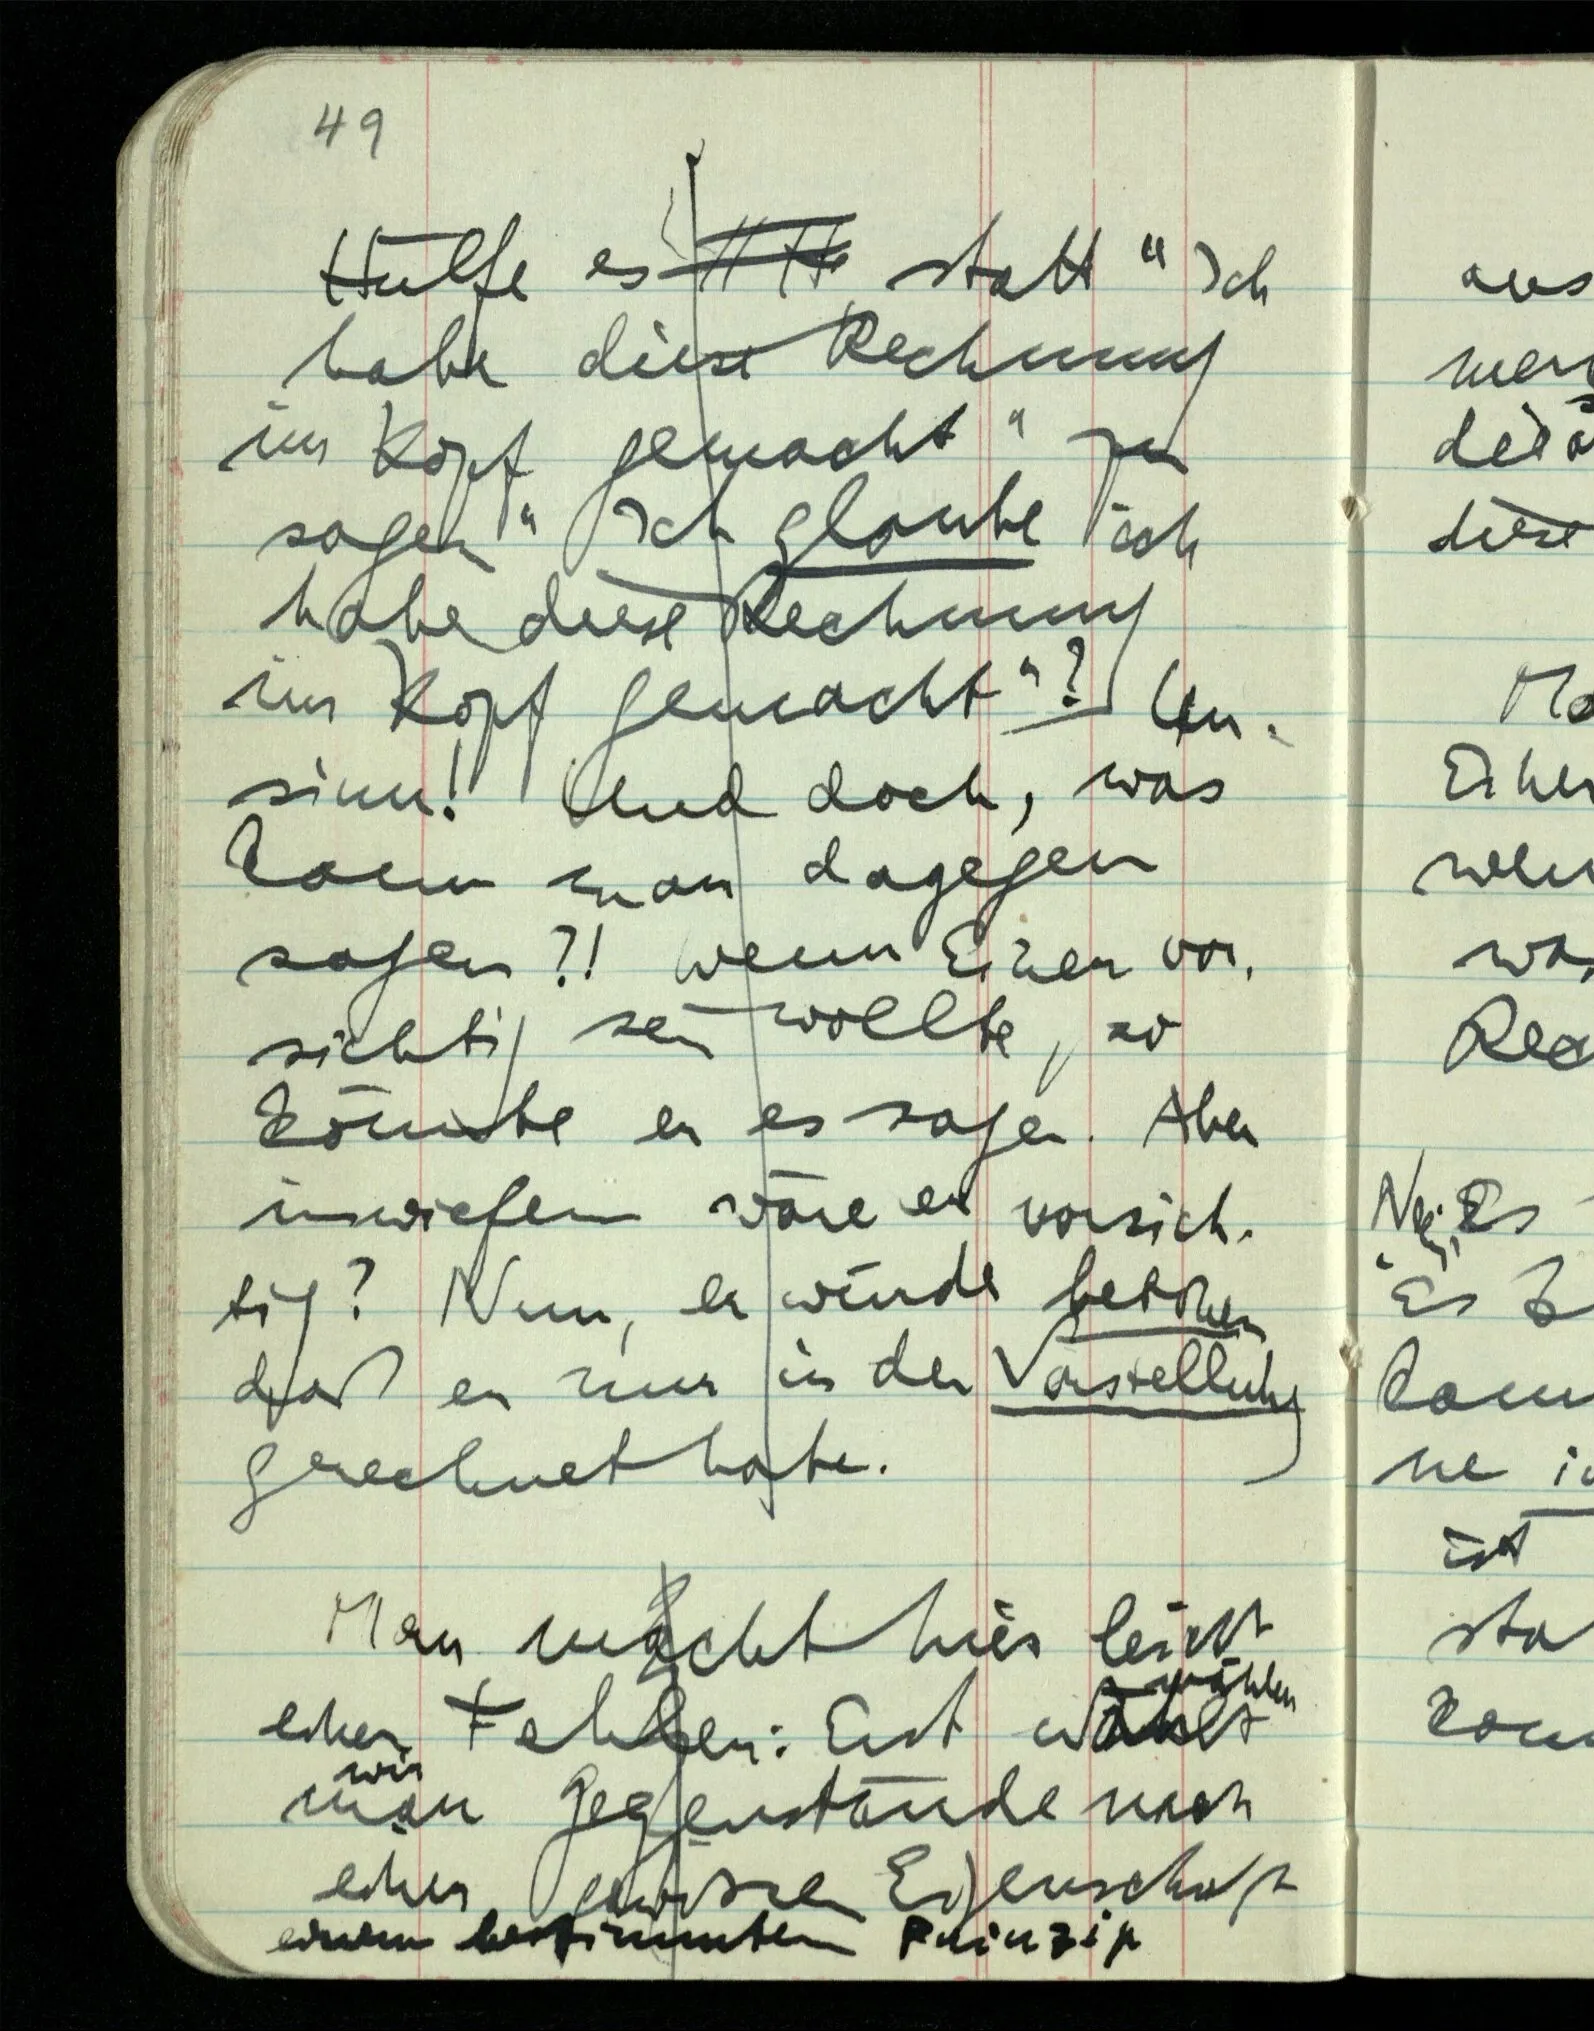 49
Hülfe es statt "Ich
habe diese Rechnung
im Kopf gemacht" zu
sagen "Ich glaube ich
habe diese Rechnung
im Kopf gemacht"? Un-
sinn! Und doch, was
kann man dagegen
sagen?! Wenn Einer vor-
sichtig sein wollte, so
könnte er es sagen. Aber
inwiefern wäre er vorsich-
tig? Nun, er würde betonen
daß er nur in der Vorstellung
gerechnet habe.
Man macht hier leicht
einen Fehler: Erst wählt
wählen
wir
man Gegenstände nach
einer gewissen Eigenschaft
einem bestimmten Prinzip
aus
diese
Ma
Einer
wenn
was
Rec
Nein, Es
"Es k
kann
ne
ist
sta